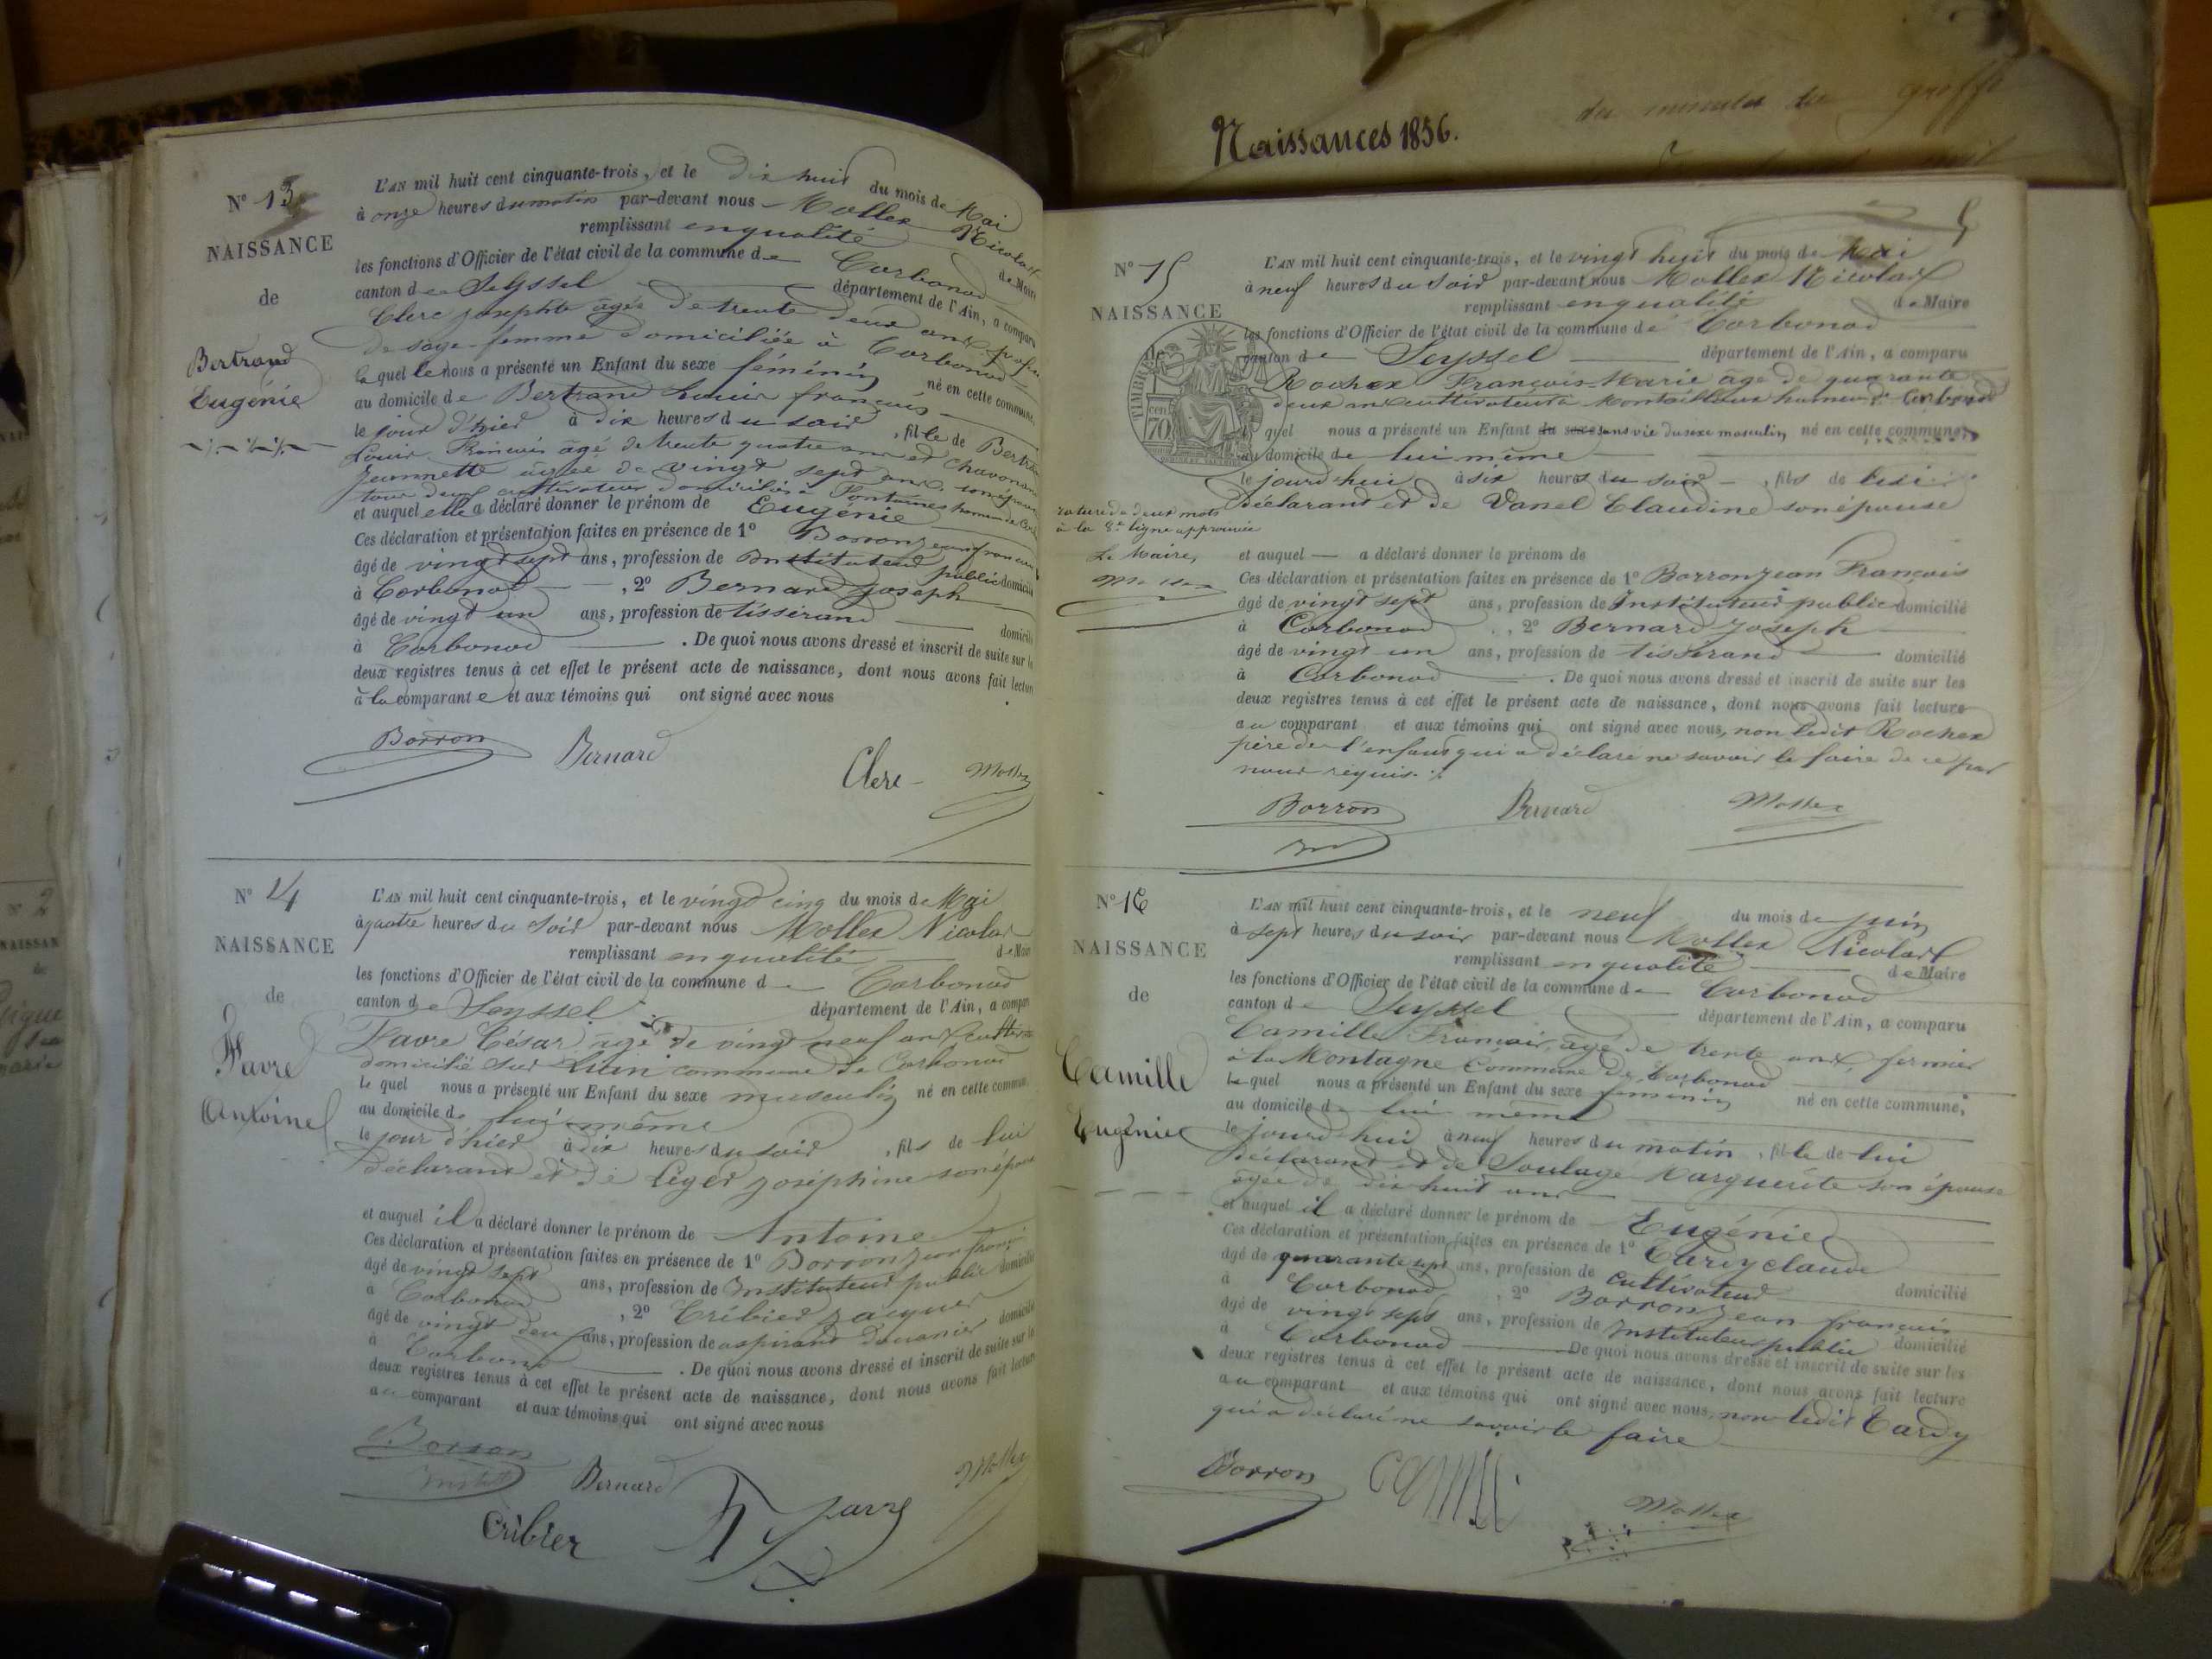 N° 13
NAISSANCE
de
Bertrand
Eugénie
L'AN mil huit cent cinquante-trois, et le dix huit du mois de Mai
à onze heures du matin par-devant nous Mollex Nicolas
remplissant en qualité de Maire
les fonctions d'Officier de l'état civil de la commune de Corbonod
canton de Seyssel département de l'Ain, a comparu
Clerc Josephte âgée de trente deux ans, profession
de sage-femme domiciliée à Corbonod
laquelle nous a présenté un Enfant du sexe féminin né en cette commune,
au domicile de Bertrand Louis françois
le jour d'hier à dix heures du soir, fille de Bertrand
Louis François âgé de trente quatre ans et Chavonand
Jeannette agée de vingt sept ans, son épouse
tous deux cultivateurs domiciliés à Fontaines hameau de
et auquel elle a déclaré donner le prénom de Eugénie
Ces déclaration et présentation faites en présence de 1° Borron jean françois
âgé de vingt sept ans, profession de Instituteur public domicilié
à Corbonod, 2° Bernard Joseph
âgé de vingt un ans, profession de tisserand domicilié
à Corbonod. De quoi nous avons dressé et inscrit de suite sur les
deux registres tenus à cet effet le présent acte de naissance, dont nous avons fait lecture
à la comparante et aux témoins qui ont signé avec nous
Borron Bernard Clerc Mollex
N° 14
NAISSANCE
de
Favre
Antoine
L'AN mil huit cent cinquante-trois, et le vingt cinq du mois de Mai
à quatre heures du soir par-devant nous Mollex Nicolas
remplissant en qualité de Maire
les fonctions d'Officier de l'état civil de la commune de Corbonod
canton de Seyssel département de l'Ain, a comparu
Favre César âgé de vingt neuf ans cultivateur
domicilié sur commune de Corbonod
lequel nous a présenté un Enfant du sexe masculin né en cette commune,
au domicile de lui même
le jour d'hier à dix heures du soir, fils de lui
déclarant et de Léger Joséphine son épouse
et auquel il a déclaré donner le prénom de Antoine
Ces déclaration et présentation faites en présence de 1° Borron Jean françois
âgé de vingt sept ans, profession de Instituteur public domicilié
à Corbonod, 2° Cribier Jacques
âgé de vingt deux ans, profession de aspirant douanier domicilié
à Corbonod. De quoi nous avons dressé et inscrit de suite sur les
deux registres tenus à cet effet le présent acte de naissance, dont nous avons fait lecture
au comparant et aux témoins qui ont signé avec nous
Borron Bernard Mollex
Cribier Favre
Naissances 1856.
des minutes du greffe
5
N° 15
NAISSANCE
TIMBRE
70 cen
L'AN mil huit cent cinquante-trois, et le vingt huit du mois de Mai
à neuf heures du soir par-devant nous Mollex Nicolas
remplissant en qualité de Maire
les fonctions d'Officier de l'état civil de la commune de Corbonod
canton de Seyssel département de l'Ain, a comparu
Rochex François-Marie âgé de quarante
deux ans cultivateur à hameau de Corbonod
quel nous a présenté un Enfant du sexe sans vie du sexe masculin né en cette commune,
au domicile de lui même
le jourd'hui à six heures du soir, fils de lui
déclarant et de Vanel Claudine son épouse
rature de deux mots
à la 8e ligne approuvée
Le Maire,
Mollex
et auquel — a déclaré donner le prénom de
Ces déclaration et présentation faites en présence de 1° Borron jean François
âgé de vingt sept ans, profession de Instituteur public domicilié
à Corbonod, 2° Bernard Joseph
âgé de vingt un ans, profession de tisserand domicilié
à Corbonod. De quoi nous avons dressé et inscrit de suite sur les
deux registres tenus à cet effet le présent acte de naissance, dont nous avons fait lecture
au comparant et aux témoins qui ont signé avec nous, non ledit Rochex
père de l'enfant qui a déclaré ne savoir le faire de ce par
nous requis.
Borron Bernard Mollex
N° 16
NAISSANCE
de
Camille
Eugénie
L'AN mil huit cent cinquante-trois, et le neuf du mois de juin
à sept heures du soir par-devant nous Mollex Nicolas
remplissant en qualité de Maire
les fonctions d'Officier de l'état civil de la commune de Corbonod
canton de Seyssel département de l'Ain, a comparu
Camille François, âgé de trente ans, fermier
à la Montagne Commune de Corbonod
lequel nous a présenté un Enfant du sexe féminin né en cette commune,
au domicile de lui même
le jourd'hui à neuf heures du matin, fille de lui
déclarant et de Soulage Marguerite son épouse
âgée de dix huit ans
et auquel il a déclaré donner le prénom de Eugénie
Ces déclaration et présentation faites en présence de 1° Tardy claude
âgé de quarante sept ans, profession de cultivateur domicilié
à Corbonod, 2° Borron jean françois
âgé de vingt sept ans, profession de Instituteur public domicilié
à Corbonod De quoi nous avons dressé et inscrit de suite sur les
deux registres tenus à cet effet le présent acte de naissance, dont nous avons fait lecture
au comparant et aux témoins qui ont signé avec nous, non ledit Tardy
qui a déclaré ne savoir le faire
Borron Mollex